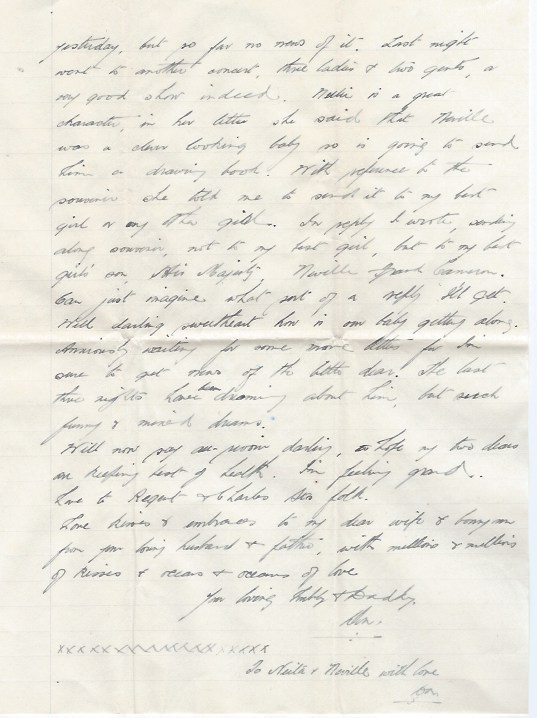 yesterday, but so far no news of it. Last night
went to another concert, three ladies & two gents, a
very good show indeed. Nellie is a great
character, in her letter she said that Neville
was a clever looking baby so is going to send
him a drawing book. With reference to the
souvenir she told me to send it to my best
girl or any other girl. In reply I wrote, sending
along souvenir, not to my best girl, but to my best
girl's son, His Majesty Neville Grant Cameron.
Can just imagine what sort of a reply I'll get.
Well darling sweetheart how is our baby getting along.
Anxiously waiting for some more letters for I'm
sure to get news of the little dear. The last
three nights have been dreaming about him, but such
funny & mixed dreams.
Will now say au-revoir darling, Hope my two dears
are keeping best of health. I'm feeling grand.
Love to Regent & Charles folk.
Love kisses & embraces to my dear wife & bonny son
from your loving husband & father, with millions & millions
of kisses & oceans & oceans of love
Your loving hubby & Daddy.
xxxxxxxxxxxxxxxxxxxx
To & Neville with love